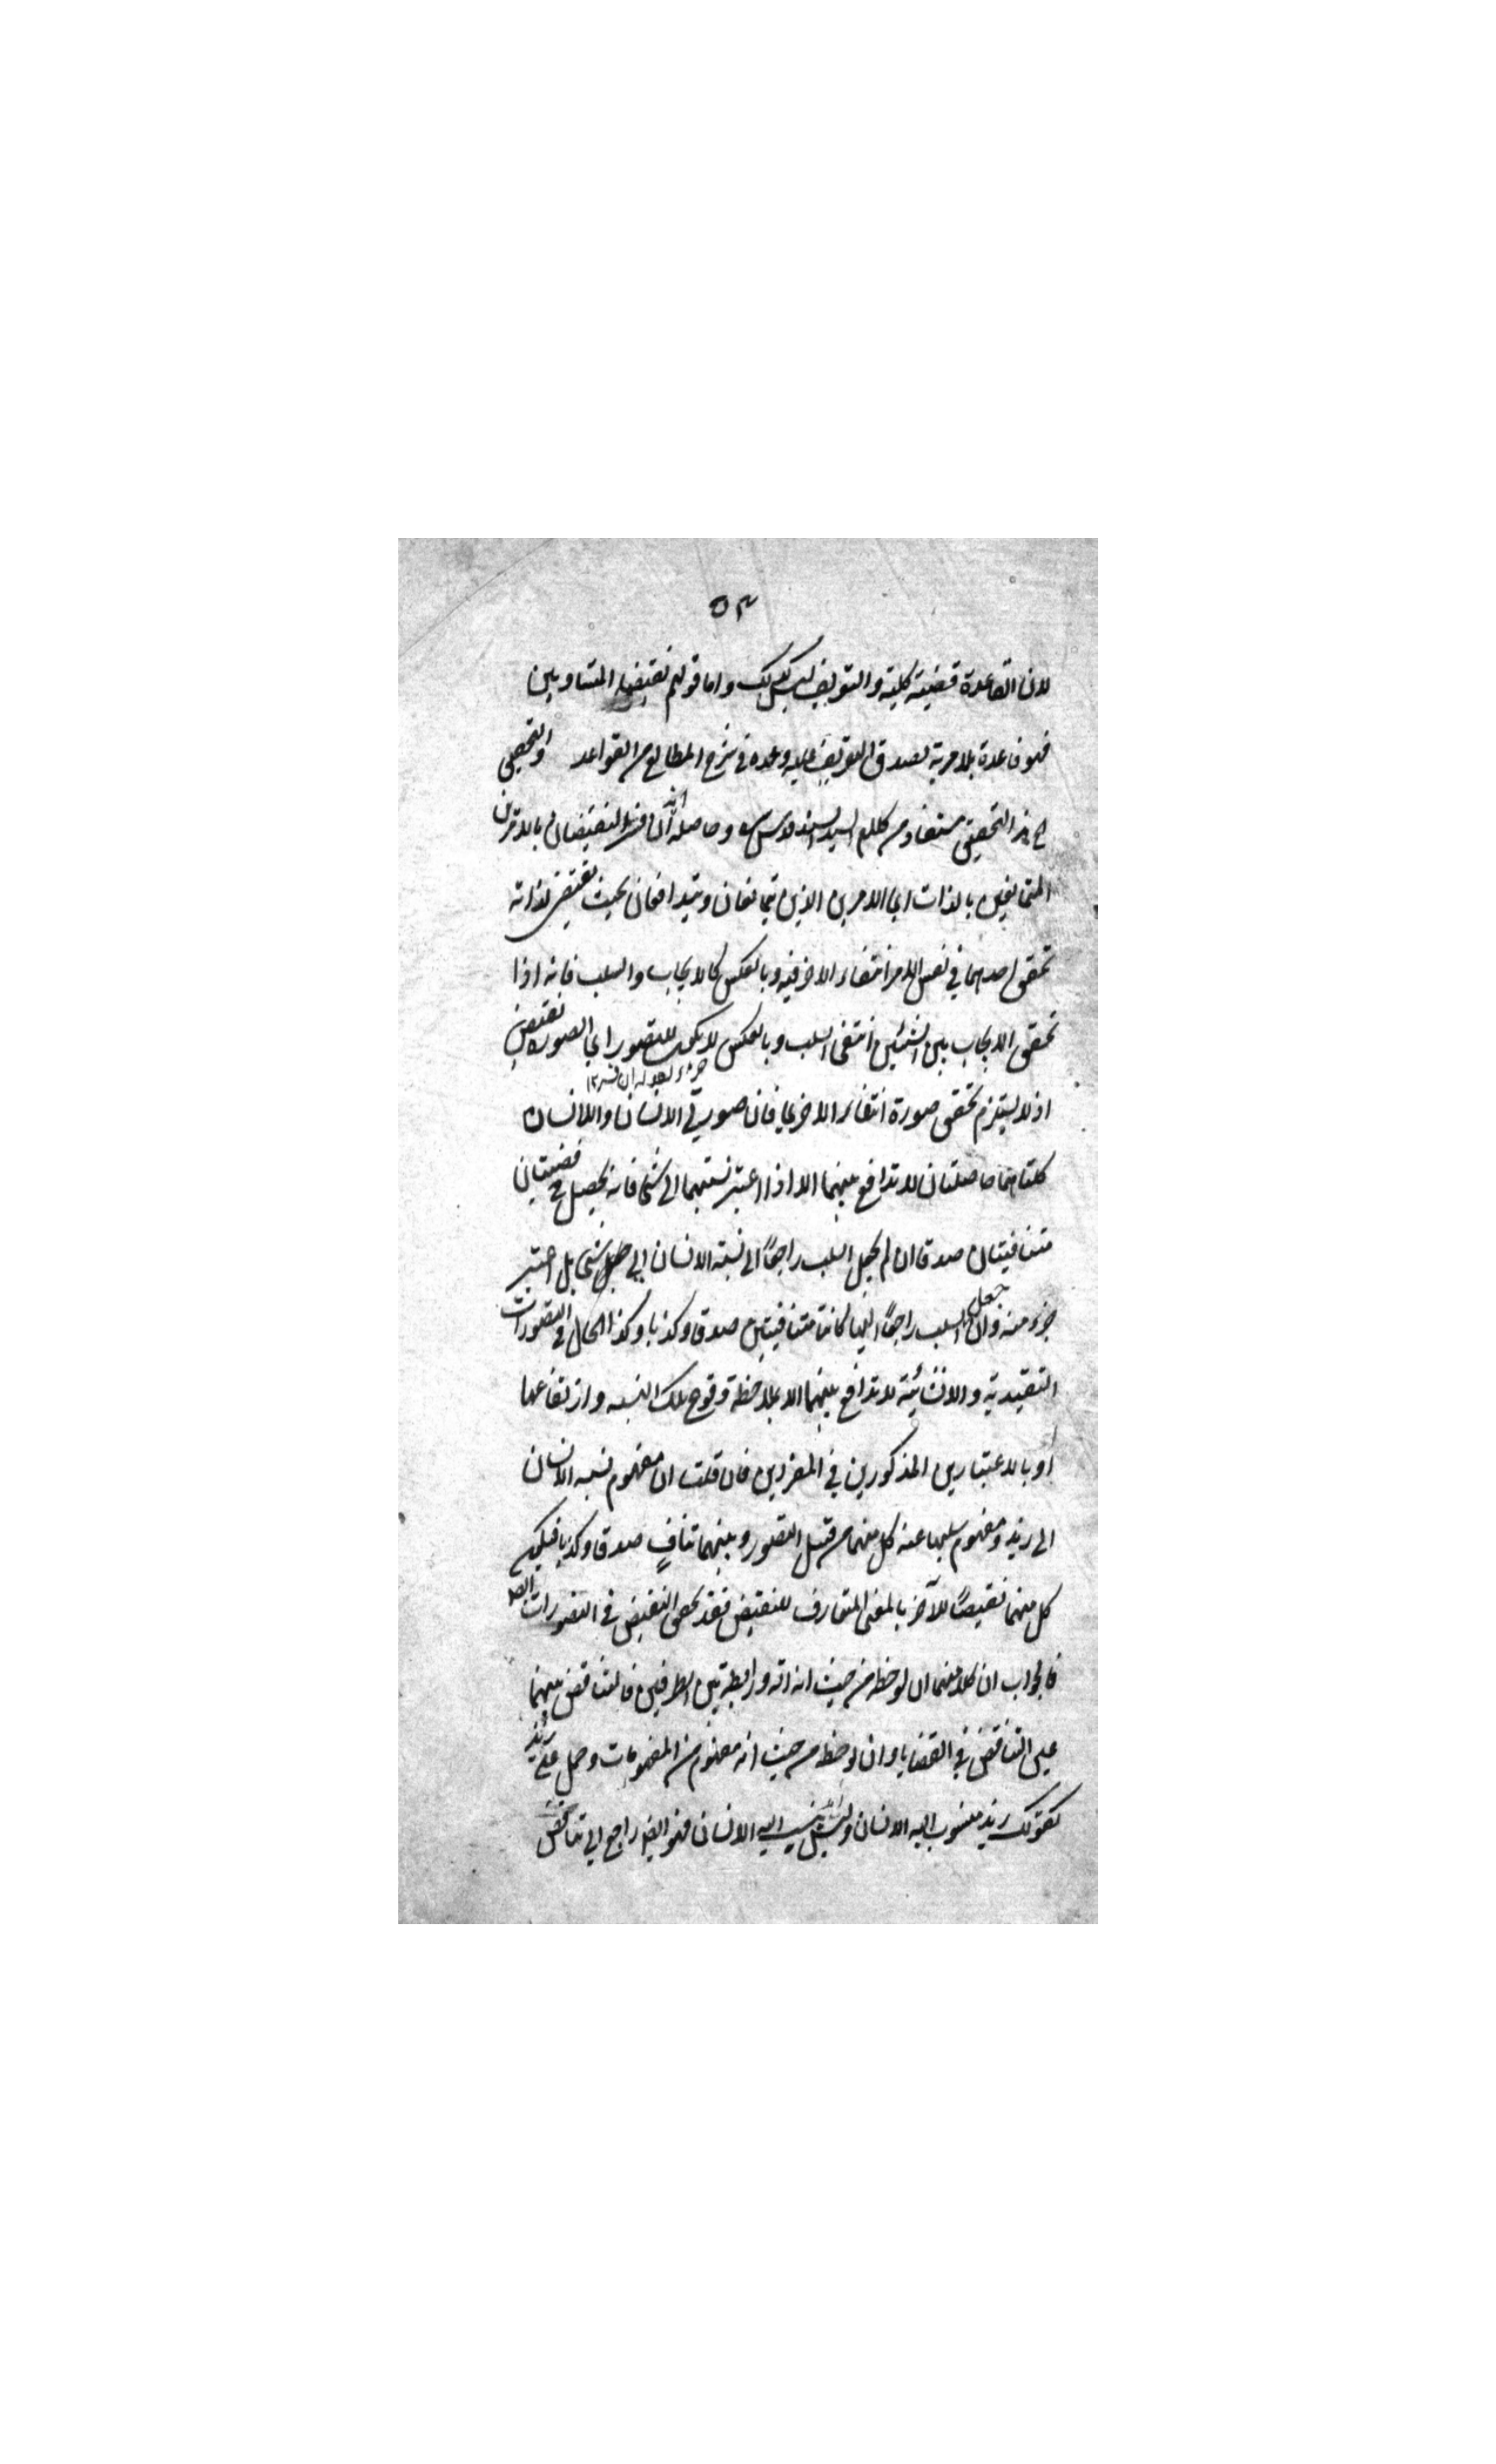 ٥٣
لان القاعدة قضية كلية والتعريف ليس كذلك واما قولهم نقيضا المتساويين
فهو قاعدة بلا مرية لصدق التعريف عليه وعده في شرح المطالع من القواعد والتحقيق
الخ هذا التحقيق مستفاد من كلام السيد السند قدس سره وحاصله انه ان فسر النقيضان بالامرين
المتمانعين بالذات اي الامرين الذين يتمانعان ويتدافعان بحيث يقتضي لذاته
تحقق احدهما في نفس الامر انتفاء الاخر فيه وبالعكس كالايجاب والسلب فانه اذا
تحقق الايجاب بين الشيئين انتفى السلب وبالعكس لا يكون للتصور اي الصورة نقيض
جزاء لقوله ان فسر ١٢
اذ لا يستلزم تحقق صورة انتفاء الاخرى فان صورتي الانسان واللاانسان
كلتاهما حاصلتان لا تدافع بينهما الا اذا اعتبر نسبتهما الى شئ فانه يحصل ح قضيتان
متنافيتان صدقا ان لم يجعل السلب راجعًا الى نسبة الانسان الى شئ بل اعتبر
جزء منه وان جعل السلب راجعًا اليها كانتا متنافيتين صدقا وكذبا وكذا الحال في التصورات
التقييدية والانشائية لا تدافع بينهما الا بملاحظة وقوع تلك النسبه وارتفاعها
او بالاعتبارين المذكورين في المفردين فان قلت ان مفهوم نسبه الانسان
الى زيد ومفهوم سلبها عنه كل منهما من قبيل التصور وبينهما تنافٍ صدقا وكذبا فيكون
كل منهما نقيضًا للآخر بالمعنى المتعارف للنقيض فقد تحقق النقيض في التصورات ايضا
فالجواب ان كلا منهما ان لوحظ من حيث انه آلة ورابطة بين الطرفين فالتناقض بينهما
عين التناقض في القضايا وان لوحظ من حيث انه مفهوم من المفهومات وحمل على زيد
كقولك زيد منسوب اليه الانسان وليس ينسب اليه الانسان فهو ايضا راجع الى تناقض